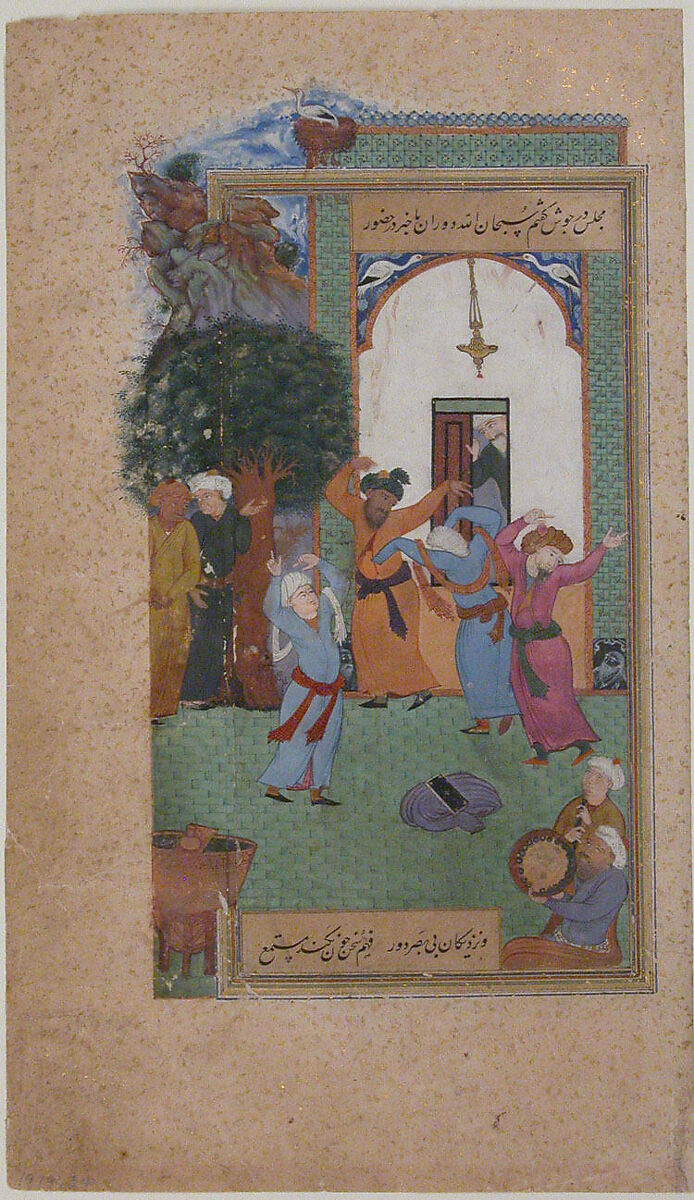 مجلس در جوش گفتم سبحان الله دوران باخبر در حضور
و نزدیکان بی بصر دور فهم سخن چون نکند مستمع